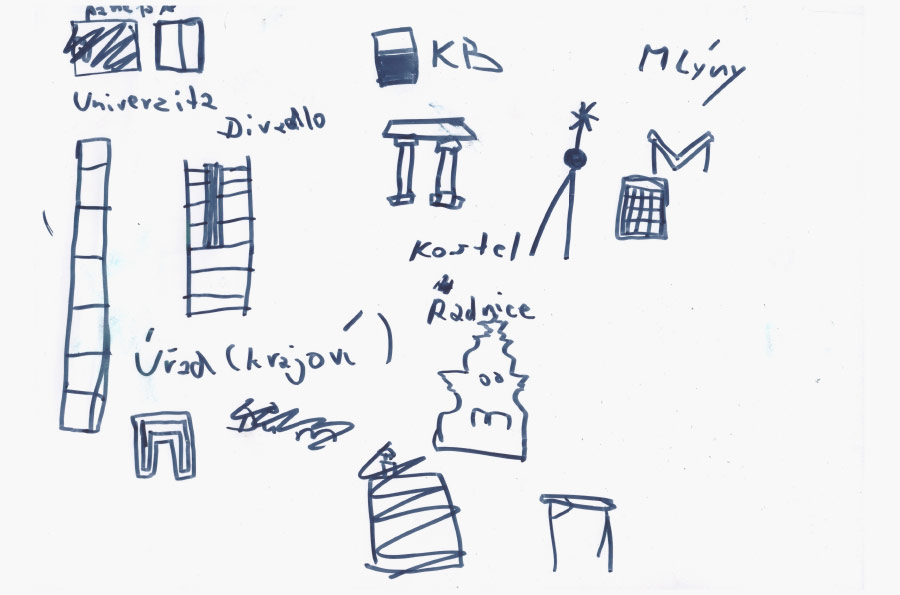 KB
Mlýny
Univerzita
Divadlo
Kostel
Radnice
Úřad (krajový)